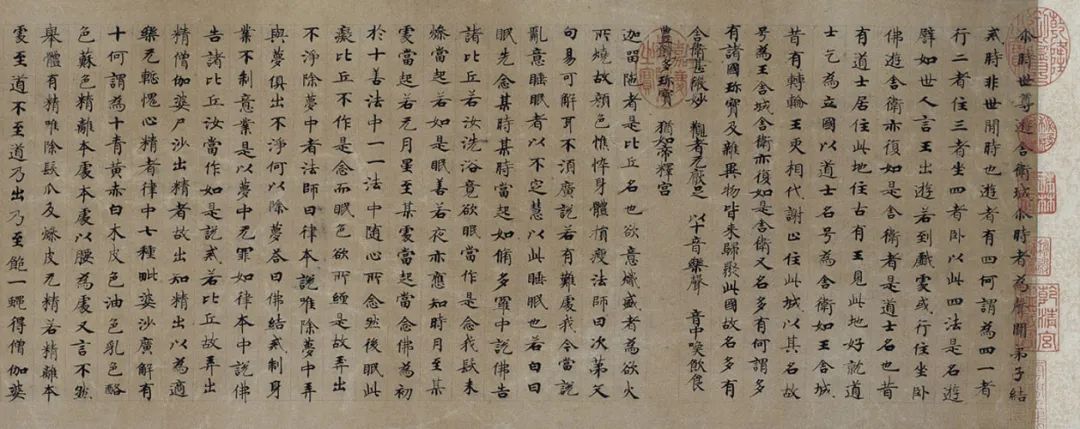 尒時世尊遊舍衛城尒時者為聲聞弟子結
戒時非世間時也遊者有四何謂為四一者
行二者住三者坐四者卧以此四法是名遊
譬如世人言王出遊若到戲處或行住坐卧
佛遊舍衛亦復如是舍衛者是道士名也昔
有道士居住此地住古有王見此地好就道
士乞為立國以道士名号為舍衛如王舍城
昔有轉輪王更相代謝止住此城以其名故
号為王舍城舍衛亦復如是舍衛又名多有何謂多
有諸國珍寶及雜異物皆来歸聚此國故名多有
舍衛甚微妙 觀者无厭足 以十音樂聲 音中喚飲食
豊饒多珍寶 猶如帝釋宮
迦留陁者是比丘名也欲意熾盛者為欲火
所燒故顏色憔悴身體損瘦法師曰次第文
句易可解耳不須廣說若有難處我今當說
亂意睡眠者以不定慧以此睡眠也若白日
眠先念某時某時當起如脩多羅中說佛告
諸比丘若汝洗浴竟欲眠當作是念我髮未
燥當起若如是眠善若夜亦應知時月至某
處當起若无月星至某處當起當念佛為初
於十善法中一一法中随心所念然後眠此
癡比丘不作是念而眠色欲所纏是故弄出
不淨除夢中者法師曰律本說唯除夢中弄
與夢俱出不淨何以除夢荅曰佛結戒制身
業不制意業是以夢中无罪如律本中說佛
告諸比丘汝當作如是說戒若比丘故弄出
精僧伽婆尸沙出精者故出知精出以為適
樂无慚愧心精者律中七種毗婆沙廣解有
十何謂為十青黄赤白木皮色油色乳色酪
色蘇色精離本處本處以腰為處又言不然
舉體有精唯除髮爪及燥皮无精若精離本
處至道不至道乃出乃至飽一蝿得僧伽婆
乾清宮